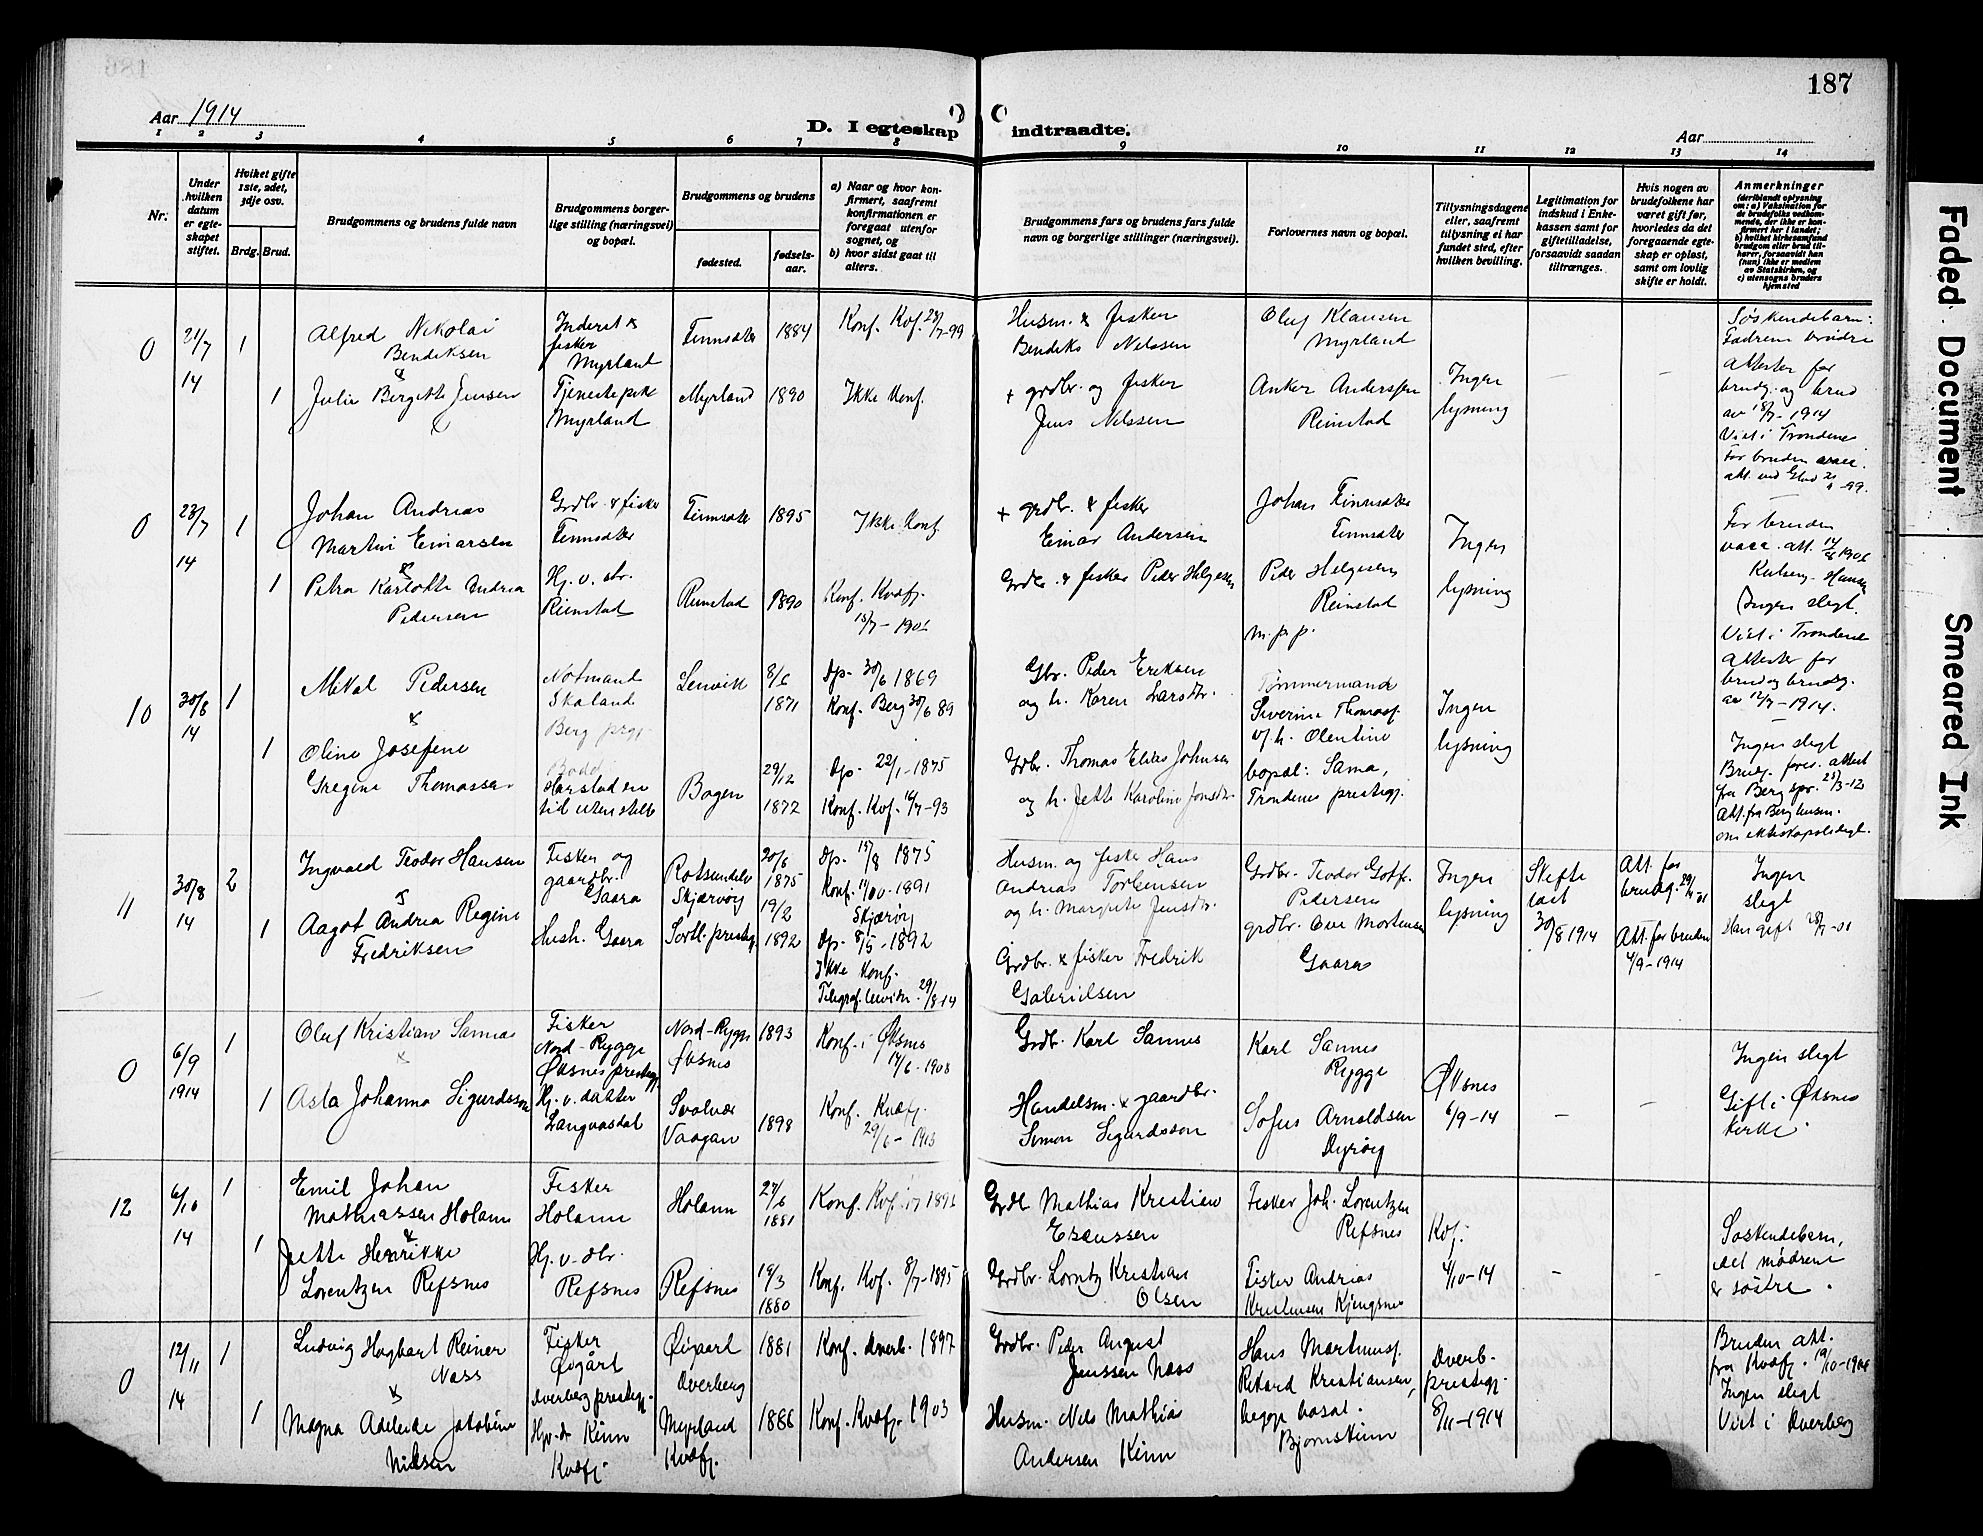 187
Aar 1914
D. I egteskap indtraadte.
Aar
1 2 3 4 5 6 7 8 9 10 11 12 13 14
Nr.
Under hvilken datum er egteskapet stiftet.
Hvilket gifte 1ste, 2det, 3dje osv.
Brdg. Brud.
Brudgommens og brudens fulde navn
Brudgommens borgerlige stilling (næringsvei) og bopæl.
Brudgommens og brudens
fødested.
fødselsaar.
a) Naar og hvor konfirmert, saafremt konfirmationen er foregaat utenfor sognet, og
b) hvor sidst gaat til alters.
Brudgommens fars og brudens fars fulde navn og borgerlige stillinger (næringsvei).
Forlovernes navn og bopæl.
Tillysningsdagene eller, saafremt tillysning ei har fundet sted, efter hvilken bevilling.
Legitimation for indskud i Enkekassen samt for giftetilladelse, forsaavidt saadan tiltrænges.
Hvis nogen av brudefolkene har været gift før, hvorledes da det foregaaende egteskap er opløst, samt om lovlig skifte er holdt.
Anmerkninger
(deriblandt oplysning om: a) Vaksination for de brudefolks vedkommende, der ikke er konfirmert her i landet; b) hvilket kirkesamfund brudgom eller brud tilhører, forsaavidt han (hun) ikke er medlem av Statskirken, og c) utensogns bruders hjemsted
0
21/7
14
1
Alfred Nikolai
Bendiksen
&
1
Julie Bergitte Jensen
Inderst &
fisker
Myrland
Tjenestepike
Myrland
Finnsæter
1884
Myrland
1890
Konf. Kvf.
Ikke Konf.
Husm. & fisker
Bendiks Nilssen
+ grdbr. og fisker
Jens Nilssen
Oluf Klausen
Myrland
Anker Anderssen
Reinstad
Ingen
lysning
Søskendebarn:
Fædrene brødre
Attester for
brudg. og brud
av 18/7-1914
Viet i Trondenes
For bruden vacc.
0
23/7
14
1
Johan Andreas
Martin Einarsen
&
1
Petra Karlotte Andrea
Pedersen
Grdbr. & fisker
Finnsæter
Hj. v. dtr.
Reinstad
Finnsæter
1895
Reinstad
1890
Ikke Konf.
Konf. Kvæfj.
+ grdbr. & fisker
Einar Andersen
Grdbr. & fisker Peder Helgesen
Johan Finnsæter
Finnsæter
Peder Helgesen
Reinstad
m. p. p.
Ingen
lysning
For bruden
vacc. att.
Ingen slegt.
Viet i Trondenes
Attester for
brud og brudg.
av 12/7-1914.
10
30/8
14
1
Mikal Pedersen
&
1
Oline Josefine
Gregine Thomassen
Notmand
Skaland
Berg prgj.
Bodø
Harstad en
tid uten stilling
Lenvik
8/6
1871
Bogen
29/12
1872
Dp. 30/6 1869
Konf. Berg 30/6 89
Dp. 22/1-1875
Konf. Kvf. 16/7-93
Gbr. Peder Eriksen
og h. Karen Larsdtr.
Grdbr. Thomas Elias Johnsen
og h. Jette Karoline Jonsdtr.
Tømmermand
Severin Thomass.
v/ h. Olentine
bopæl: Sama,
Trondenes prestegj.
Ingen
lysning
Ingen slegt
Brudg. fores. attest
fra Berg spr. 25/3-12
Att. fra Berg
om ekteskapsledigh.
11
30/8
14
2
Ingvald Teodor Hansen
&
1
Aagot Andrea Regine
Fredriksen
Fisker og
gaardbr.
Gaara
Hush. Gaara
Rotsundelv
Skjærvøy
20/6
1875
Sortl. prestegj.
19/2
1892
Dp. 15/8 1875
Konf. 1891
Skjærøy
Dp. 8/5-1892
Ikke Konf.
Telegraf. 29/8-14
Husm. og fisker Hans
Andreas Torbensen
og h. Margrete Jensdtr.
Grdbr. & fisker Fredrik
Gabrielsen
Grdbr. Teodor Gotfr.
Pedersen
grdbr. Ove Mortensen
Gaara
Ingen
lysning
Skifte
30/8 1914
Att. for
brudg.
Att. for bruden
4/9-1914
Ingen
slegt
Han gift
0
6/9
1914
1
Oluf Kristian Sannes
&
1
Asta Johanna Sigurdsson
Fisker
Nord-Rygge
Øksnes prestegj.
Hj. v. datter
Langvasdal
Nord-Rygge
Øksnes
1893
Svolvær
Vaagan
1898
Konf. i Øksnes
14/6-1908
Konf. Kvæfj.
29/6-1913
Grdbr. Karl Sannes
Handelsm. & gaardbr.
Simon Sigurdsson
Karl Sannes
Rygge
Sofus Arnoldsen
Dyrøy
Øksnes
6/9-14
Ingen slegt
Gift i Øksnes
kirke.
12
6/10
14
1
Emil Johan
Mathiassen Holann
&
1
Jette Henrikke
Lorentzen Refsnes
Fisker
Holann
Hj. v. dtr.
Refsnes
Holann
27/6
1881
Refsnes
19/3
1880
Konf. Kvf.
Konf. Kvf. 8/7-1895
Grdbr. Mathias Kristian
Eseussen
Grdbr. Lorntz Kristian
Olsen
Fisker Joh. Lorentzen
Refsnes
Fisker Andreas
Kristensen Kjengsnes
Kvfj.
4/10-14
Søskendebarn,
idet mødrene
er søstre.
0
12/11
14
1
Ludvig Hagbart Reiner
Næss
&
1
Magna Adeleide Jakobine
Nilsen
Fisker
Øigård
Dverberg prestegj.
Hjv. dtr Kinn
Kvæfj.
Øigaard
Dverberg
1881
Myrland
Kvæfj.
1886
Konf. Dverb. 1897
Konf. Kvæfj. 1903
Grdbr. Peder August
Janssen Næss
Husm. Nils Mathias
Andersen Kinn
Hans Martinuss.
Rikard Kristiansen,
begge bosat.
Bjørnskinn
Dverb.
prestegj.
8/11-1914
Bruden att.
fra Kvæfj.
Ingen slegt
Viet i Dverberg
Faded Document
Smeared Ink